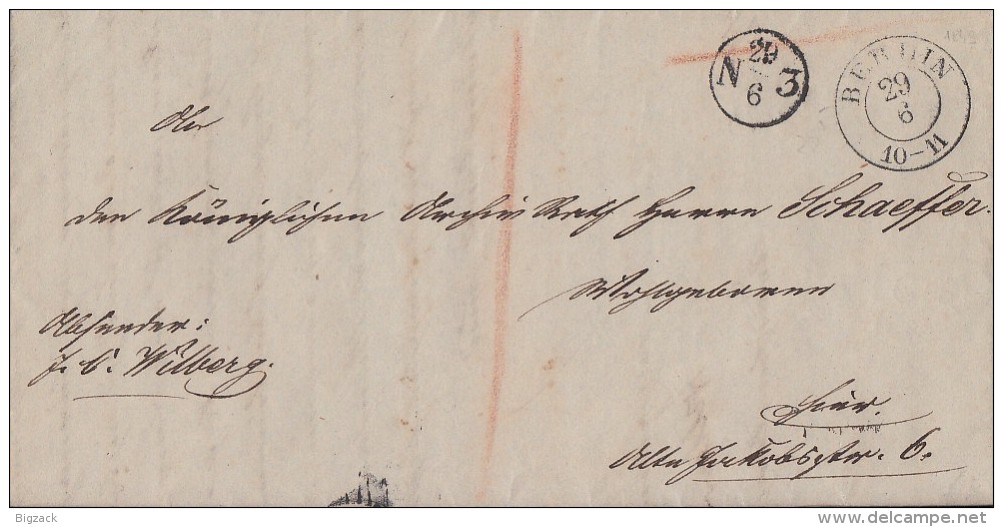 29
N 3
6
BERLIN
29
6
10-11
An
den Königlichen Archiv Rath Herrn Schaeffer.
Wohlgeboren
Absender:
J. C. Wilberg.
hier.
Alte Jakobsstr. 6.
Bigzack
delcampe.net